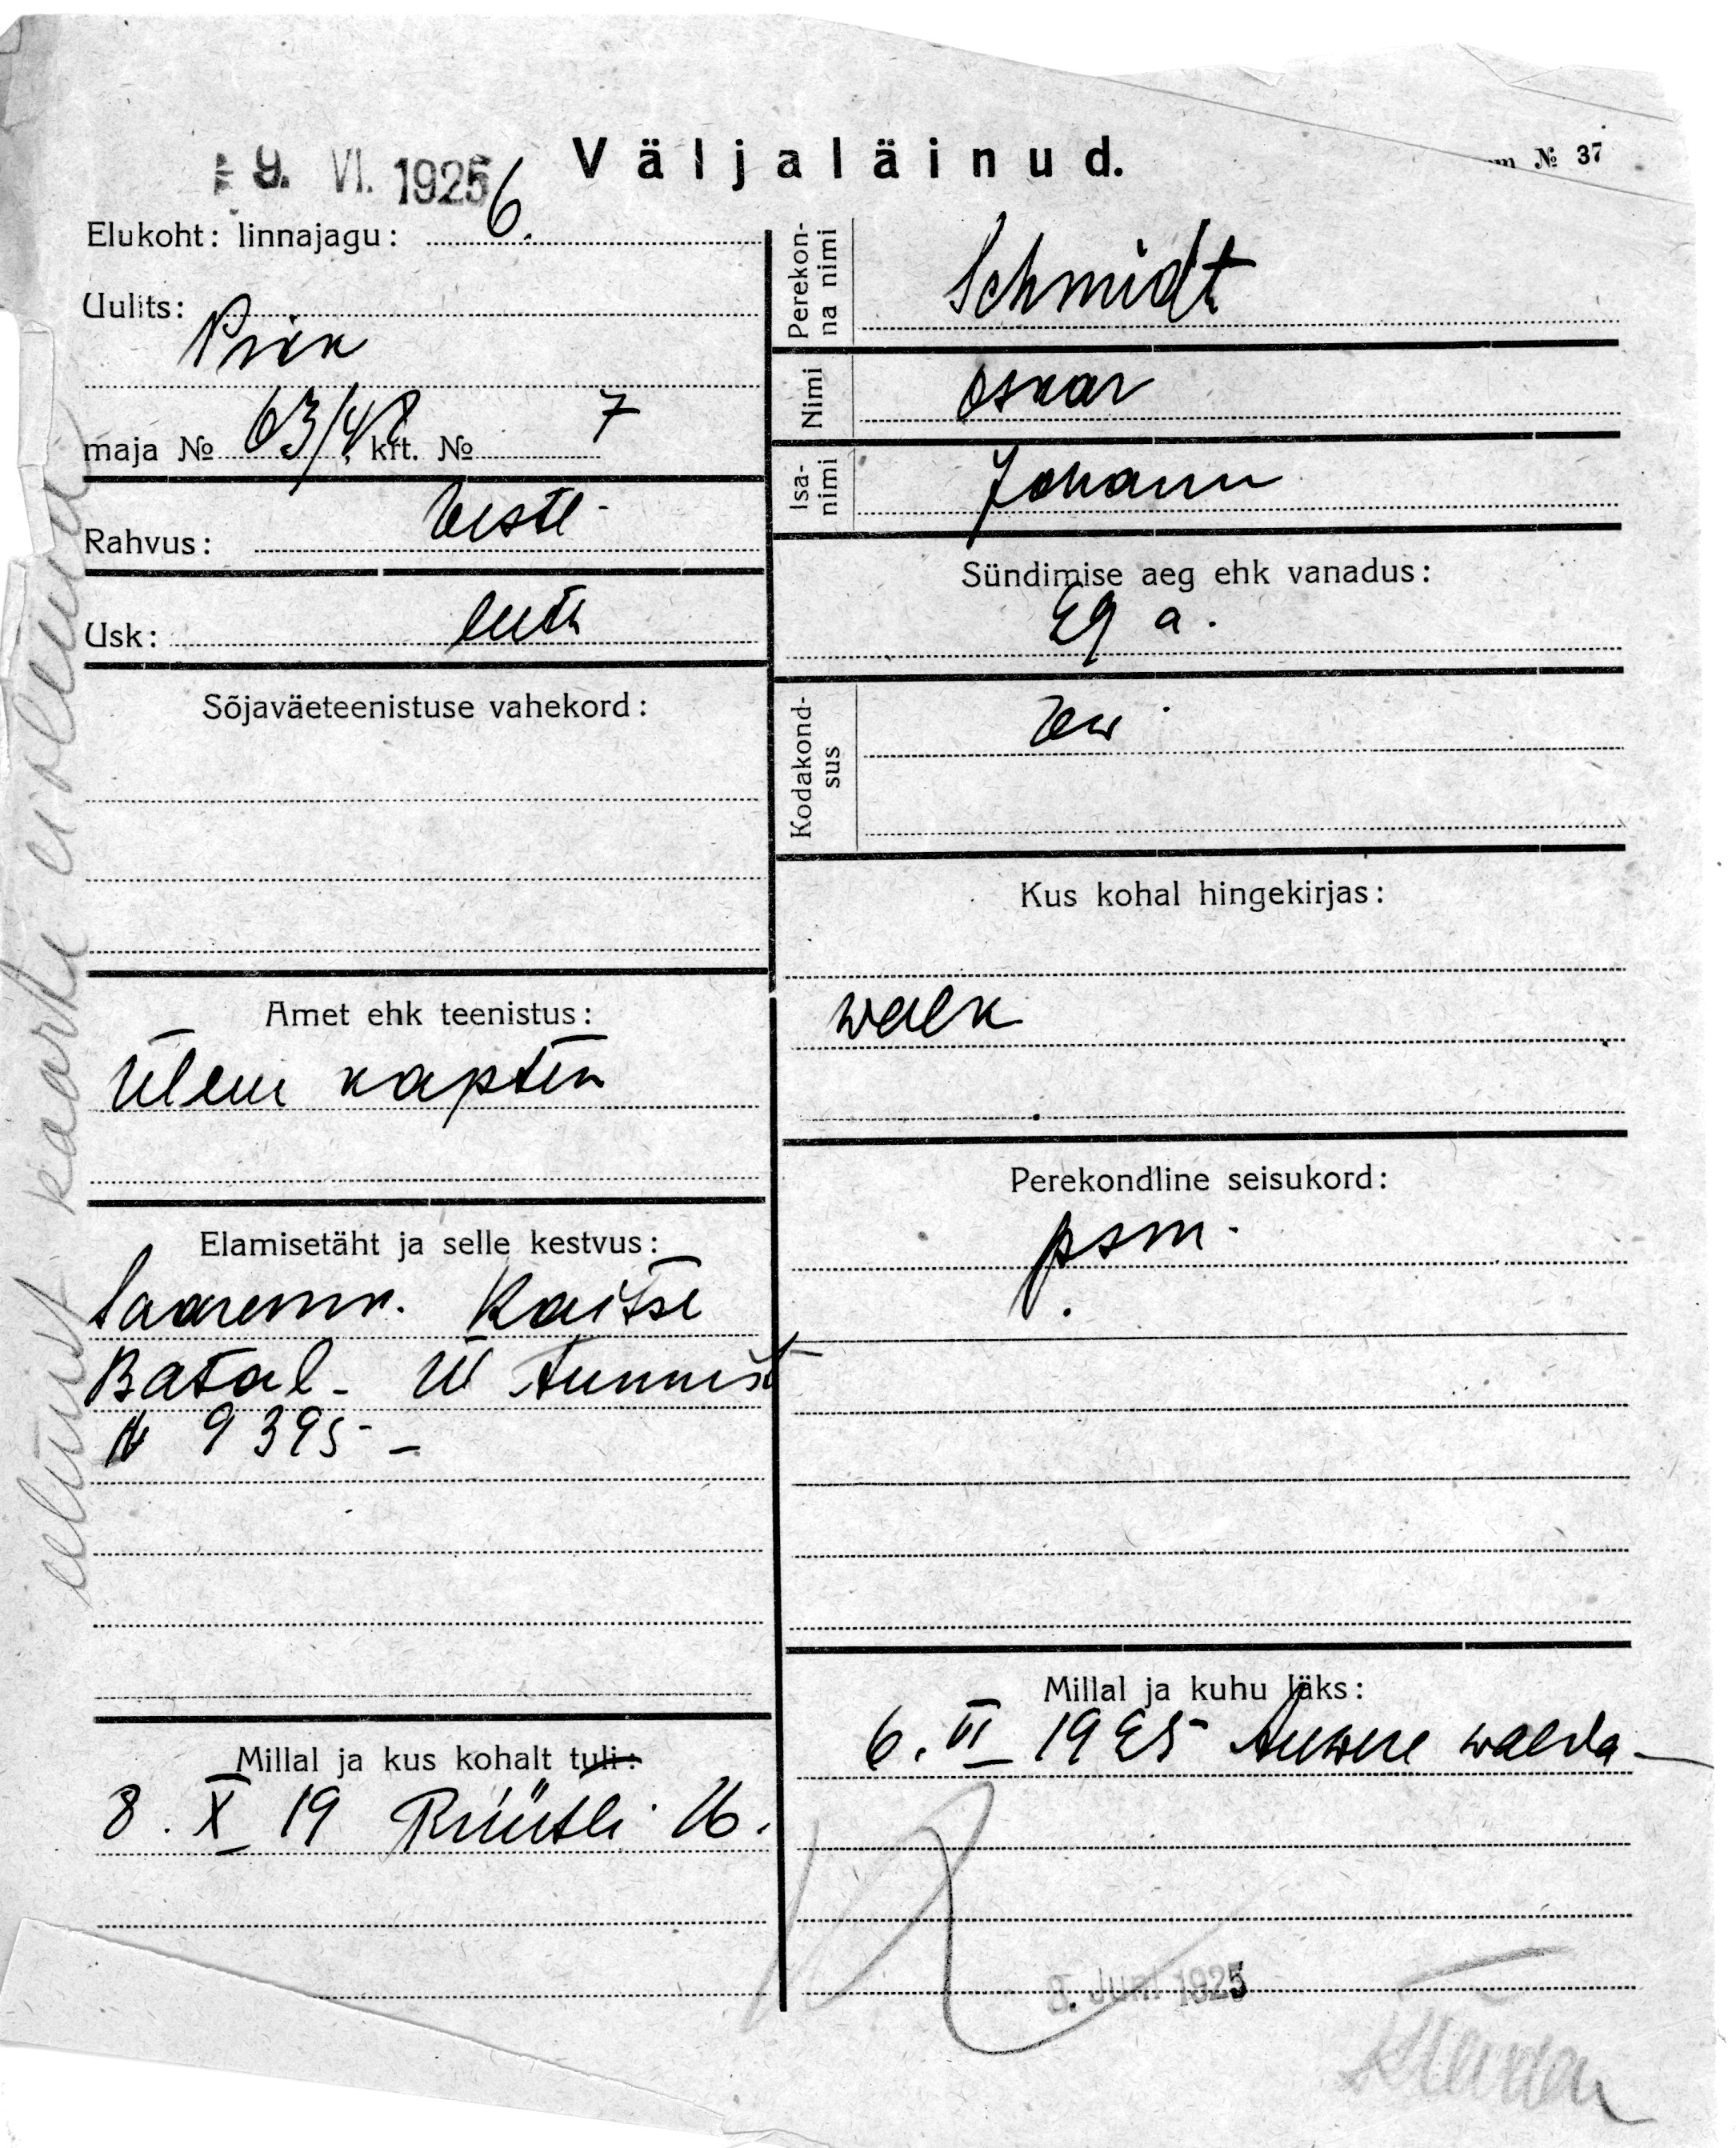 9. VI. 1925
Väljaläinud.
№ 37
Elukoht: linnajagu: 6.
Uulits:
Pikk
maja № 63/48, krt. № 7
Rahvus: Eestl.
Usk: luth
Sõjaväeteenistuse vahekord:
Amet ehk teenistus:
Ülem kapten
Elamisetäht ja selle kestvus:
Saarem. Kaitse
Batal. tunnist
№ 9395 –
Millal ja kus kohalt tuli:
8. X 19 Rüütli 16.
Perekonna nimi
Schmidt
Nimi
Oskar
Isanimi
Johann
Sündimise aeg ehk vanadus:
29 a.
Kodakondsus
Kus kohal hingekirjas:
Walk
Perekondline seisukord:
Millal ja kuhu läks:
6. VI 1925 walda –
8. Juni 1925
eelmist kaarti ei olemud